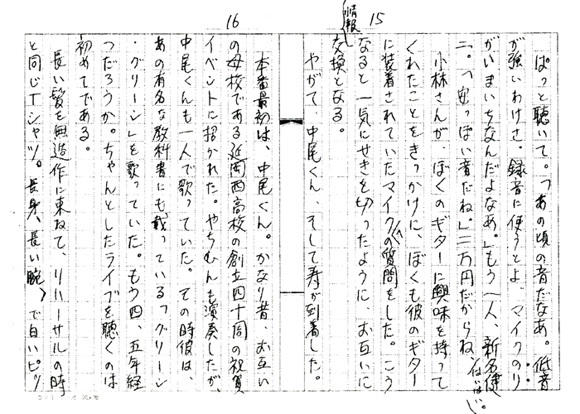 15
ぱっと聴いて。「あの頃の音だなあ。低音
が強いわけさ。録音に使うとよ、マイクのり
がいまいちなんだよなあ。」もう一人、新名使
二。「安っぽい音だね。」二万円だからね
小林さんが、ぼくのギターに興味を持って
くれたことをきっかけに、ぼくも彼のギター
に装着されていたマイクへの質問をした。こう
なると一気にせきを切ったように、お互いに
情報
交換となる。
やがて、中尾くん、そして寿が到着した。
16
本番最初は、中尾くん。かなり昔、お互い
の母校である西高校の創立四十周の祝賀
イベントに招かれた。やちむんも演奏したが、
中尾くんも一人で歌っていた。その時彼は、
あの有名な教科書にも載っている「グリーン
・グリーン」を歌っていた。もう四、五年経
つだろうか。ちゃんとしたライブを聴くのは
初めてである。
長い髪を無造作に束ねて、リハーサルの時
と同じTシャツ。長身、長い腕、で白いピッ